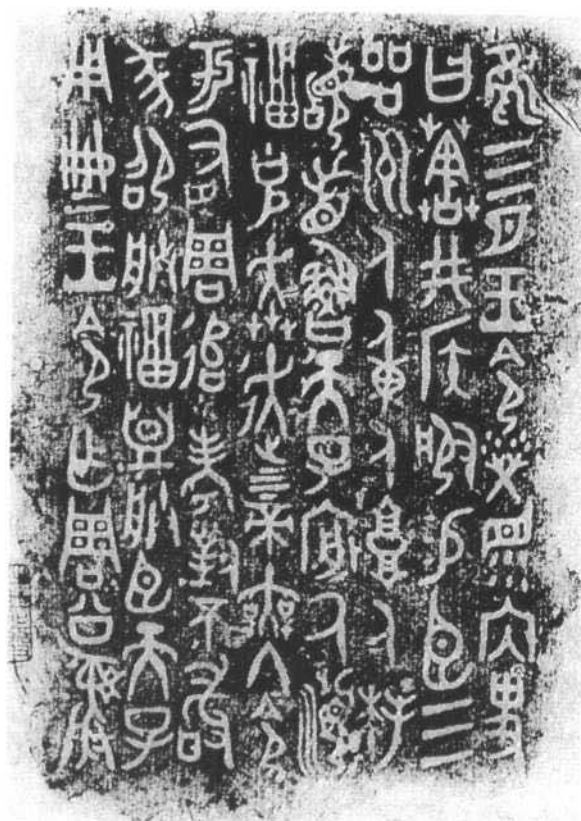 隹三月王令𤇾眔内史
曰𦵯井侯服易臣三
品州人重人𩫏人拜
稽首魯天子𡨦氒瀕
福克奔走上下帝無冬令
于有周追考對不敢
㒸卲朕福盟朕臣天子
用典王令乍周公彝